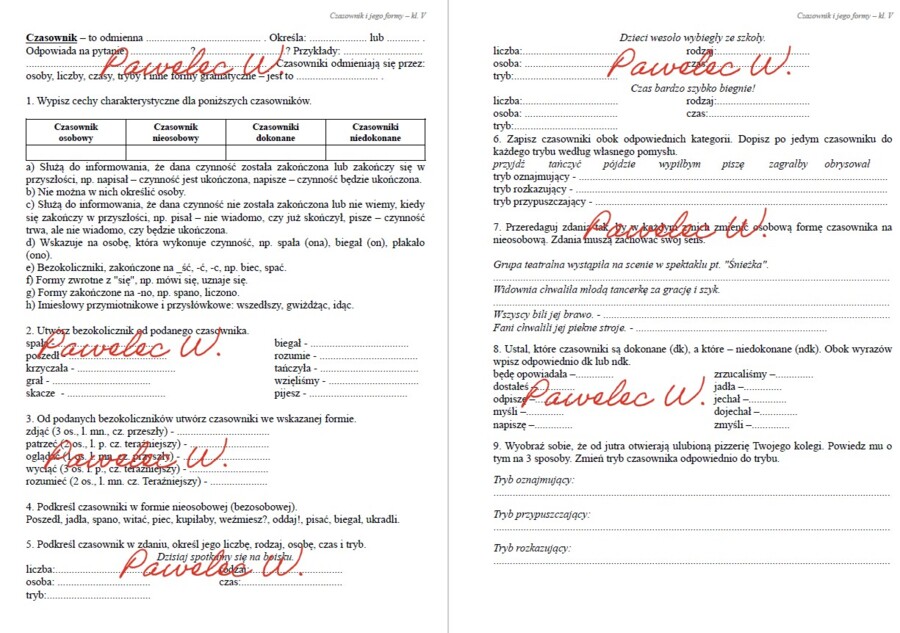 Czasownik i jego formy – kl. V
Czasownik – to odmienna ........................................ . Określa: .................... lub ............ .
Odpowiada na pytanie ........................? ................................? Przykłady: ............................
Czasowniki odmieniają się przez:
osoby, liczby, czasy, tryby i inne formy gramatyczne – jest to .............................. .
Pawelec W.
1. Wypisz cechy charakterystyczne dla poniższych czasowników.
Czasownik osobowy
Czasownik nieosobowy
Czasowniki dokonane
Czasowniki niedokonane
a) Służą do informowania, że dana czynność została zakończona lub zakończy się w
przyszłości, np. napisał – czynność jest ukończona, napisze – czynność będzie ukończona.
b) Nie można w nich określić osoby.
c) Służą do informowania, że dana czynność nie została zakończona lub nie wiemy, kiedy
się zakończy w przyszłości, np. pisał – nie wiadomo, czy już skończył, pisze – czynność
trwa, ale nie wiadomo, czy będzie ukończona.
d) Wskazuje na osobę, która wykonuje czynność, np. spała (ona), biegał (on), płakało
(ono).
e) Bezokoliczniki, zakończone na _ść, -ć, -c, np. biec, spać.
f) Formy zwrotne z "się", np. mówi się, uznaje się.
g) Formy zakończone na -no, np. spano, liczono.
h) Imiesłowy przymiotnikowe i przysłówkowe: wszedłszy, gwiżdżąc, idąc.
2. Utwórz bezokolicznik od podanego czasownika.
spała - ................................ biegał - ................................
poszedł - ................................ rozumie - ................................
krzyczała - ................................ tańczyła - ................................
grał - ................................ wzięliśmy - ................................
skacze - ................................ pijesz - ................................
Pawelec W.
3. Od podanych bezokoliczników utwórz czasowniki we wskazanej formie.
zdjąć (3 os., l. mn., cz. przeszły) - ................................
patrzeć (2 os., l. p. cz. teraźniejszy) - ................................
oglądać (1 os. l. mn. cz. przyszły) - ................................
wyciąć (3 os. l. p., cz. teraźniejszy) - ................................
rozumieć (2 os., l. mn. cz. Teraźniejszy) - ....................
Pawelec W.
4. Podkreśl czasowniki w formie nieosobowej (bezosobowej).
Poszedł, jadła, spano, witać, piec, kupiłaby, weźmiesz?, oddaj!, pisać, biegał, ukradli.
5. Podkreśl czasownik w zdaniu, określ jego liczbę, rodzaj, osobę, czas i tryb.
Dzisiaj spotkamy się na boisku.
liczba:................................ rodzaj:................................
osoba: ................................ czas:................................
tryb:................................
Pawelec W.
Czasownik i jego formy – kl. V
Dzieci wesoło wybiegły ze szkoły.
liczba:................................ rodzaj:................................
osoba: ................................ czas:................................
tryb:................................
Pawelec W.
Czas bardzo szybko biegnie!
liczba:................................ rodzaj:................................
osoba: ................................ czas:................................
tryb:................................
6. Zapisz czasowniki obok odpowiednich kategorii. Dopisz po jedym czasowniku do
każdego trybu według własnego pomysłu.
przyjdź tańczyć pójdzie wypiłbym piszę zagrałby obrysował
tryb oznajmujący - ................................
tryb rozkazujący - ................................
tryb przypuszczający - ................................
7. Przeredaguj zdania tak, by w każdym z nich zmienić osobową formę czasownika na
nieosobową. Zdania muszą zachować swój sens.
Pawelec W.
Grupa teatralna wystąpiła na scenie w spektaklu pt. "Śnieżka".
................................
Widownia chwaliła młodą tancerkę za grację i szyk.
................................
Wszyscy bili jej brawo. - ................................
Fani chwalili jej piekne stroje. - ................................
8. Ustal, które czasowniki są dokonane (dk), a które – niedokonane (ndk). Obok wyrazów
wpisz odpowiednio dk lub ndk.
będę opowiadała –............. zrzucaliśmy –.............
dostałeś –............. jadła –.............
odpiszę –............. jechał –.............
myśli –............. dojechał –.............
napiszę –............. zmyśli –.............
Pawelec W.
9. Wyobraź sobie, że od jutra otwierają ulubioną pizzerię Twojego kolegi. Powiedz mu o
tym na 3 sposoby. Zmień tryb czasownika odpowiednio do trybu.
Tryb oznajmujący:
................................
Tryb przypuszczający:
................................
Tryb rozkazujący:
................................